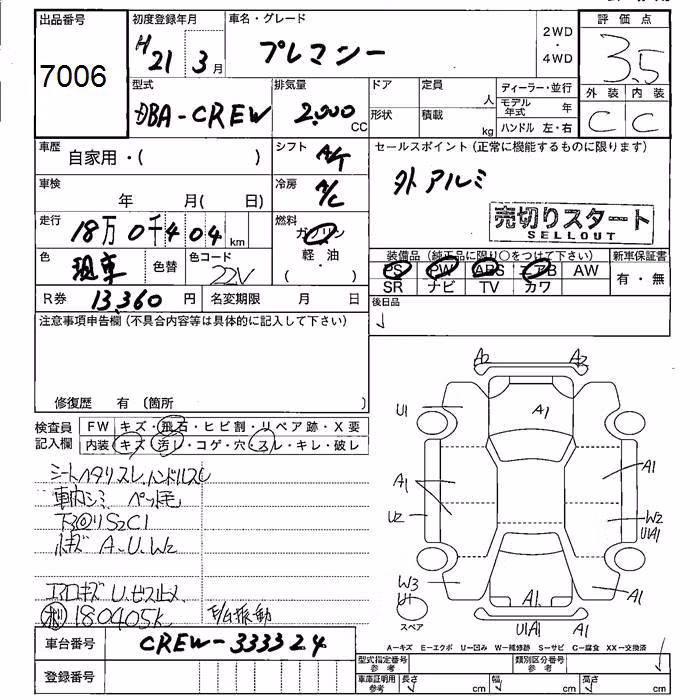 出品番号
7006
初度登録年月
H21 3月
車名・グレード
プレマシー
2WD
・
4WD
評価点
3.5
外装 内装
C C
型式
DBA-CREW
排気量
2,000
CC
ドア
定員
人
形状
積載
kg
ディーラー・並行
モデル年式 年
ハンドル 左・右
車歴
自家用・( )
シフト
A/T
セールスポイント(正常に機能するものに限ります)
外アルミ
車検
年 月( 日)
冷房
A/C
売切りスタート
SELLOUT
走行
18万0千404km
燃料
ガソリン
・
軽・油
( )
色
現車
色替
色コード
22V
装備品(純正品に限り○をつけて下さい)
PS PW ABS エアB AW
SR ナビ TV カワ
新車保証書
有・無
R券 13,360円
名変期限 月 日
後日品
注意事項申告欄(不具合内容等は具体的に記入して下さい)
修復歴 有(箇所 )
検査員記入欄
FW キズ・飛石・ヒビ割・リペア跡・X要
内装 キズ・汚レ・コゲ・穴・スレ・キレ・破レ
シートヘタリスレ,ハンドルスレ
車内シミ ペット毛
下回りS2C1
小キズ A.U.W2
エアロキズU.ビス止メ
180405K E/G振動
A2 A2
U1 A1
A1 A1
U2 W2
U1A1
W3
U1 A1 A1
U1A1
スペア
A-キズ E-エクボ U-凹み W-補修跡 S-サビ C-腐食 XX-交換済
車台番号
CREW-333324
登録番号
型式指定番号
参考
類別区分番号
参考
車庫証明用
参考
長さ cm 幅 cm 高さ cm